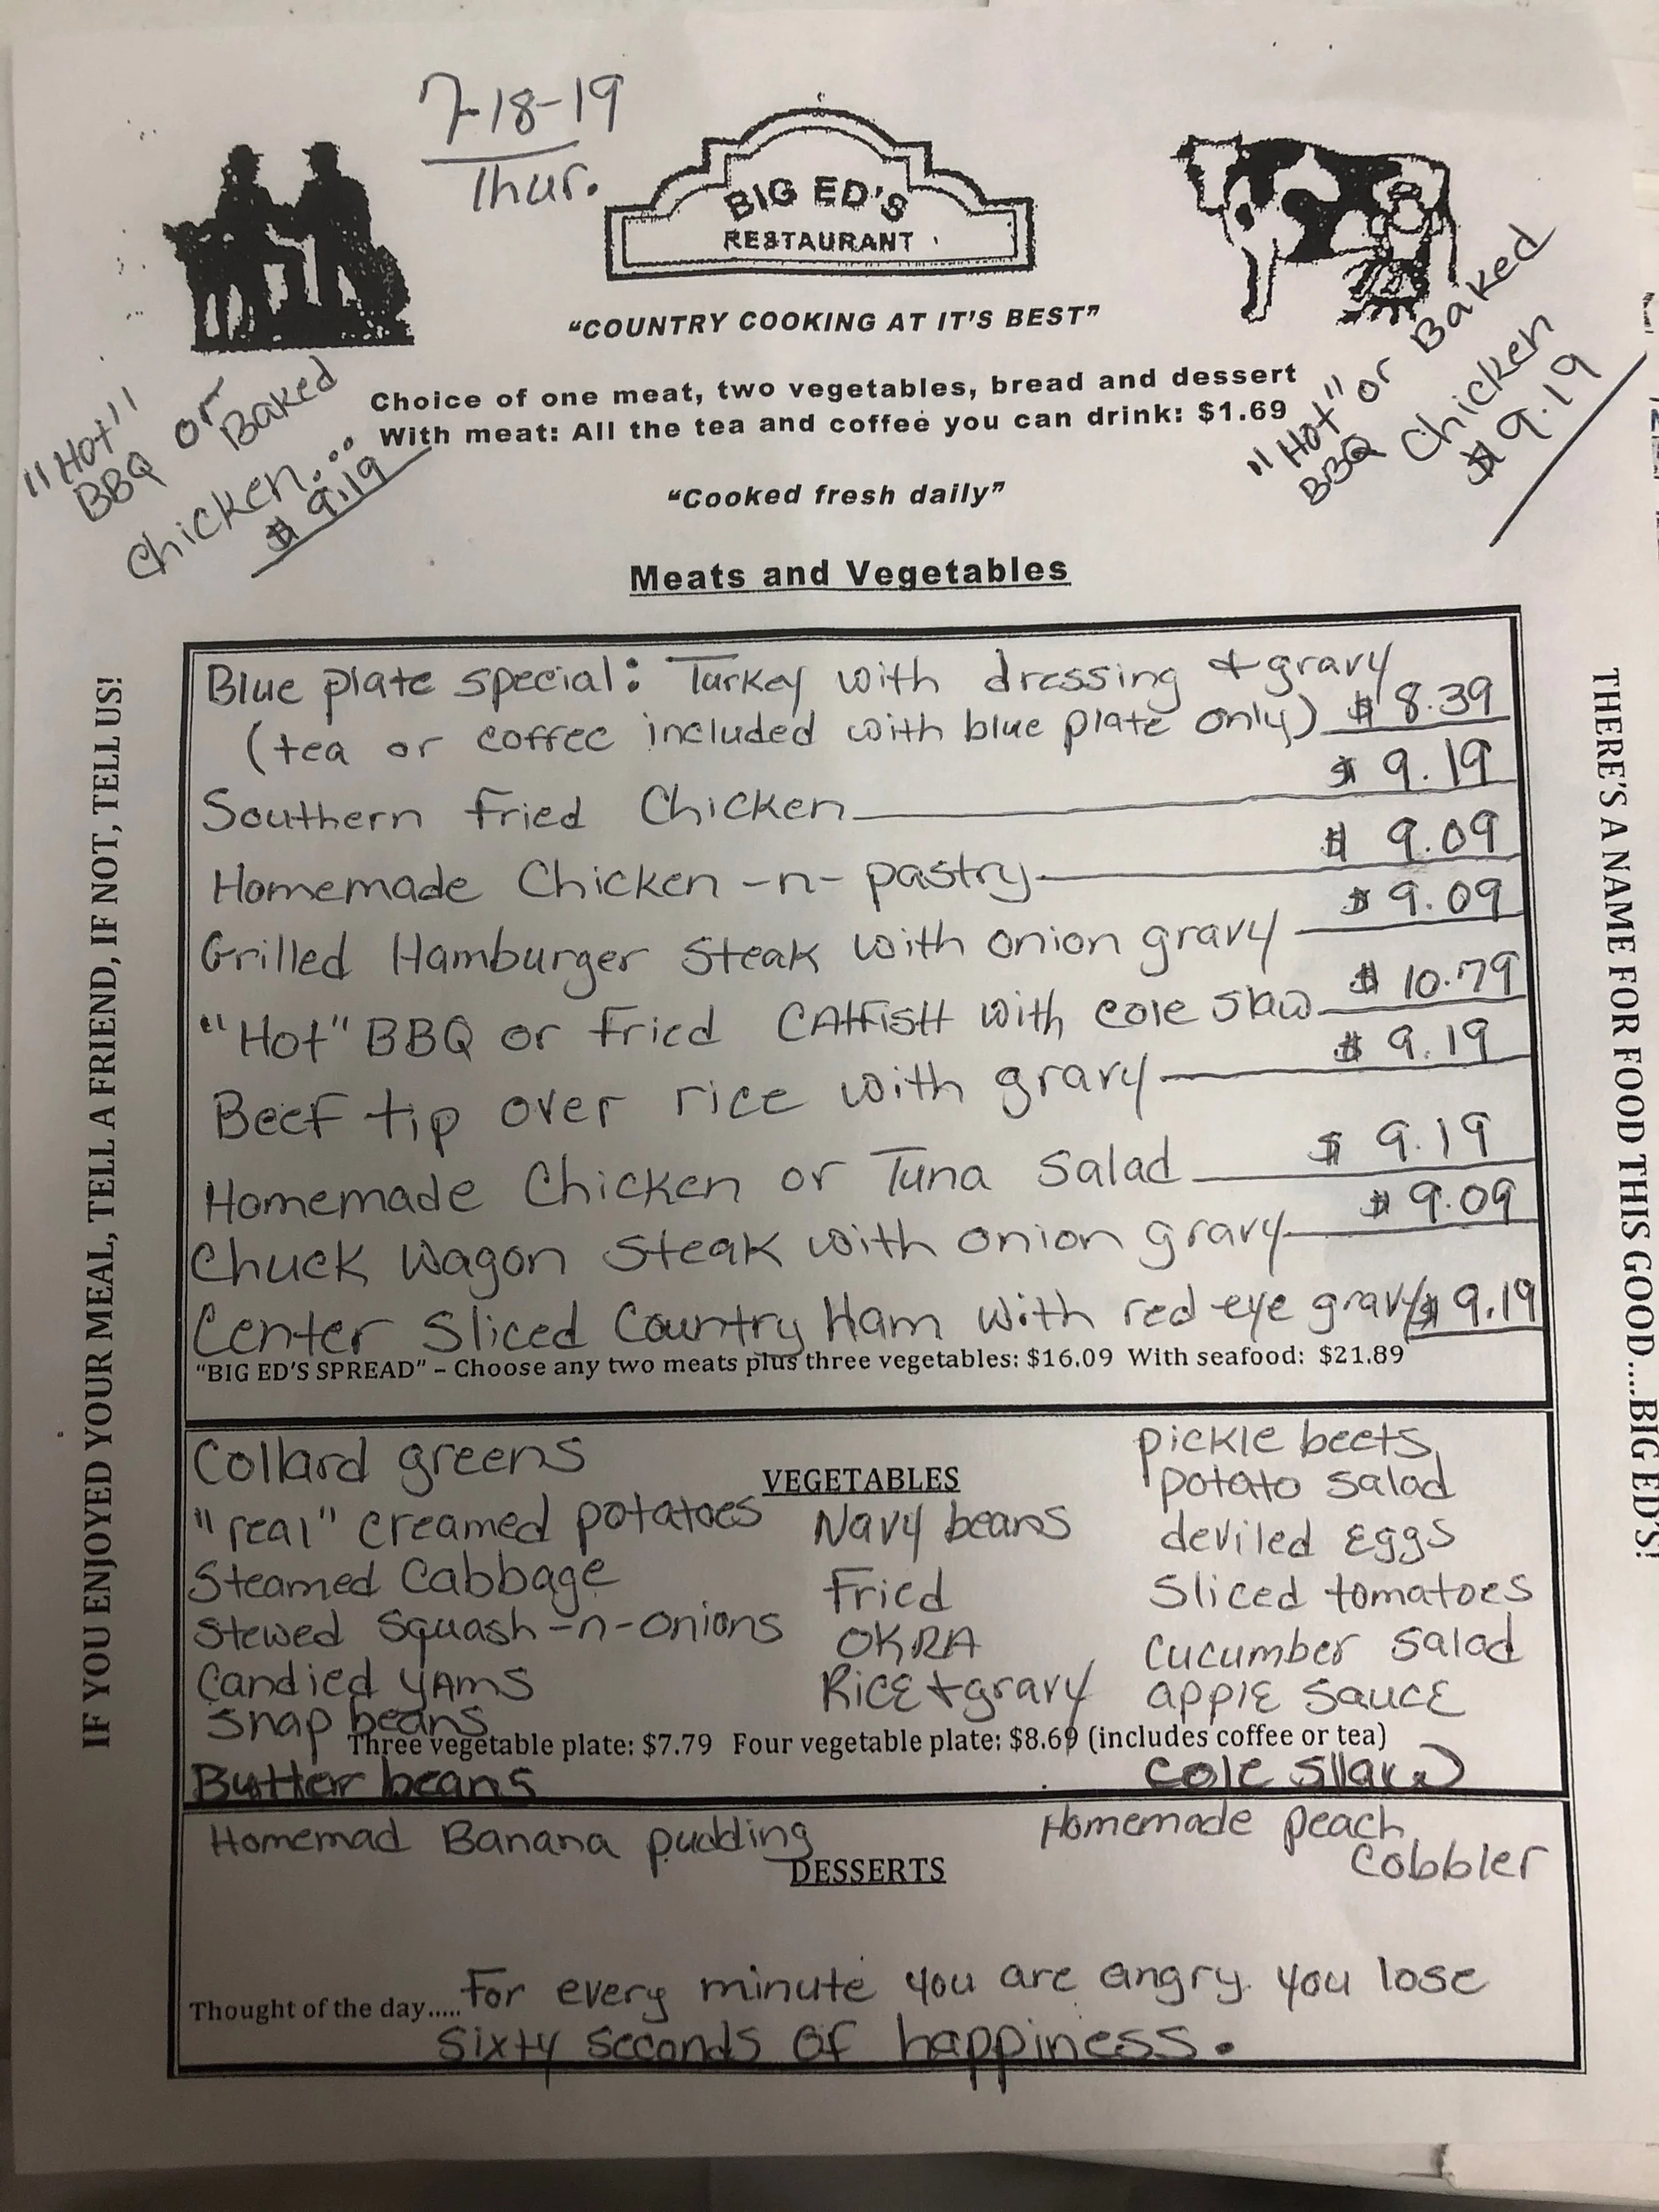 7-18-19
Thur.
BIG ED'S
RESTAURANT
"COUNTRY COOKING AT IT'S BEST"
Choice of one meat, two vegetables, bread and dessert
With meat: All the tea and coffee you can drink: $1.69
"Cooked fresh daily"
"Hot" or
BBQ Baked
Chicken...
$9.19
"Hot" or Baked
BBQ Chicken
$9.19
Meats and Vegetables
Blue plate special: Turkey with dressing + gravy
(tea or coffee included with blue plate only) $8.39
Southern Fried Chicken $9.19
Homemade Chicken -n- pastry $9.09
Grilled Hamburger Steak with onion gravy $9.09
"Hot" BBQ or Fried CATFISH with cole slaw $10.79
Beef tip over rice with gravy $9.19
Homemade Chicken or Tuna Salad $9.19
Chuck Wagon Steak with onion gravy $9.09
Center Sliced Country Ham with red-eye gravy $9.19
"BIG ED'S SPREAD" – Choose any two meats plus three vegetables: $16.09 With seafood: $21.89
VEGETABLES
Collard greens
"real" creamed potatoes
Steamed Cabbage
Stewed Squash-n-onions
Candied YAMS
Snap beans
Butter beans
Navy beans
Fried
OKRA
Rice + gravy
pickle beets
potato salad
deviled Eggs
Sliced tomatoes
Cucumber salad
apple sauce
Cole Sllaw
Three vegetable plate: $7.79 Four vegetable plate: $8.69 (includes coffee or tea)
Homemad Banana pudding
Homemade peach
cobbler
DESSERTS
Thought of the day..... For every minute you are angry you lose
sixty seconds of happiness.
IF YOU ENJOYED YOUR MEAL, TELL A FRIEND, IF NOT, TELL US!
THERE'S A NAME FOR FOOD THIS GOOD....BIG ED'S!